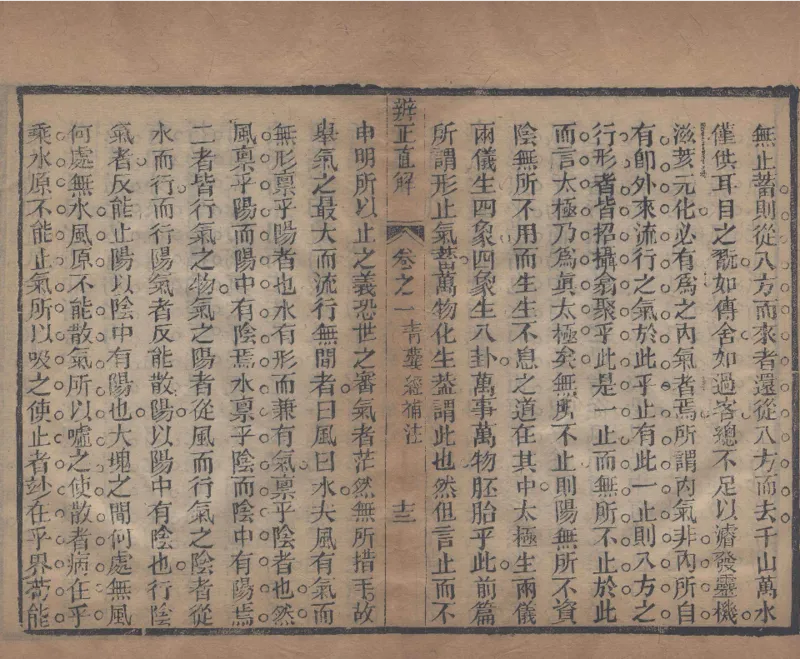 無止蓄則從八方而來者還從八方而去千山萬水
僅供耳目之翫如傳舍如過客總不足以濬發靈機
滋荄元化必有為之內氣者焉所謂內氣非內所自
有卽外來流行之氣於此乎止有此一止則八方之
行形者皆招攝翕聚乎此是一止而無所不止於此
而言太極乃為眞太極矣無所不止則陽無所不資
陰無所不用而生生不息之道在其中太極生兩儀
兩儀生四象四象生八卦萬事萬物胚胎乎此前篇
所謂形止氣蓄萬物化生葢謂此也然但言止而不
辨正直解
卷之一
青囊經補注
十三
申明所以止之義恐世之審氣者茫然無所措手故
舉氣之最大而流行無間者曰風曰水夫風有氣而
無形稟乎陽者也水有形而兼有氣稟乎陰者也然
風稟乎陽而陽中有陰焉水稟乎陰而陰中有陽焉
二者皆行氣之物氣之陽者從風而行氣之陰者從
水而行而行陽氣者反能散陽以陽中有陰也行陰
氣者反能止陽以陰中有陽也大塊之間何處無風
何處無水風原不能散氣所以噓之使散者病在乎
乘水原不能止氣所以吸之使止者玅在乎界苟能